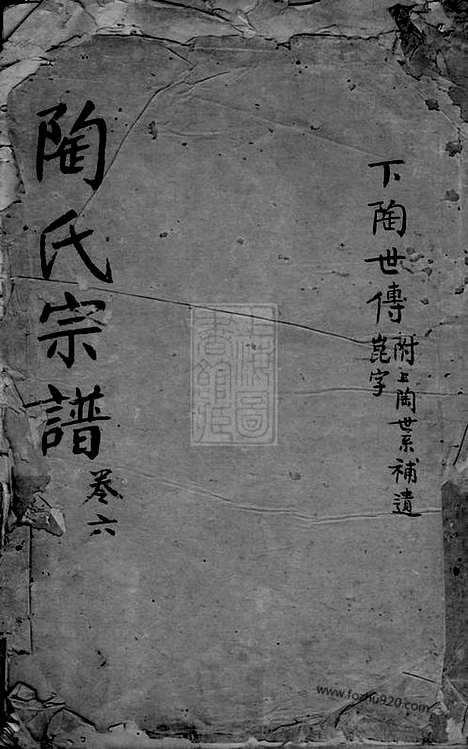 下陶世傳
附上陶世系補遺
崑字
陶氏宗譜
卷六
上海圖書館藏
www.fozhu920.com